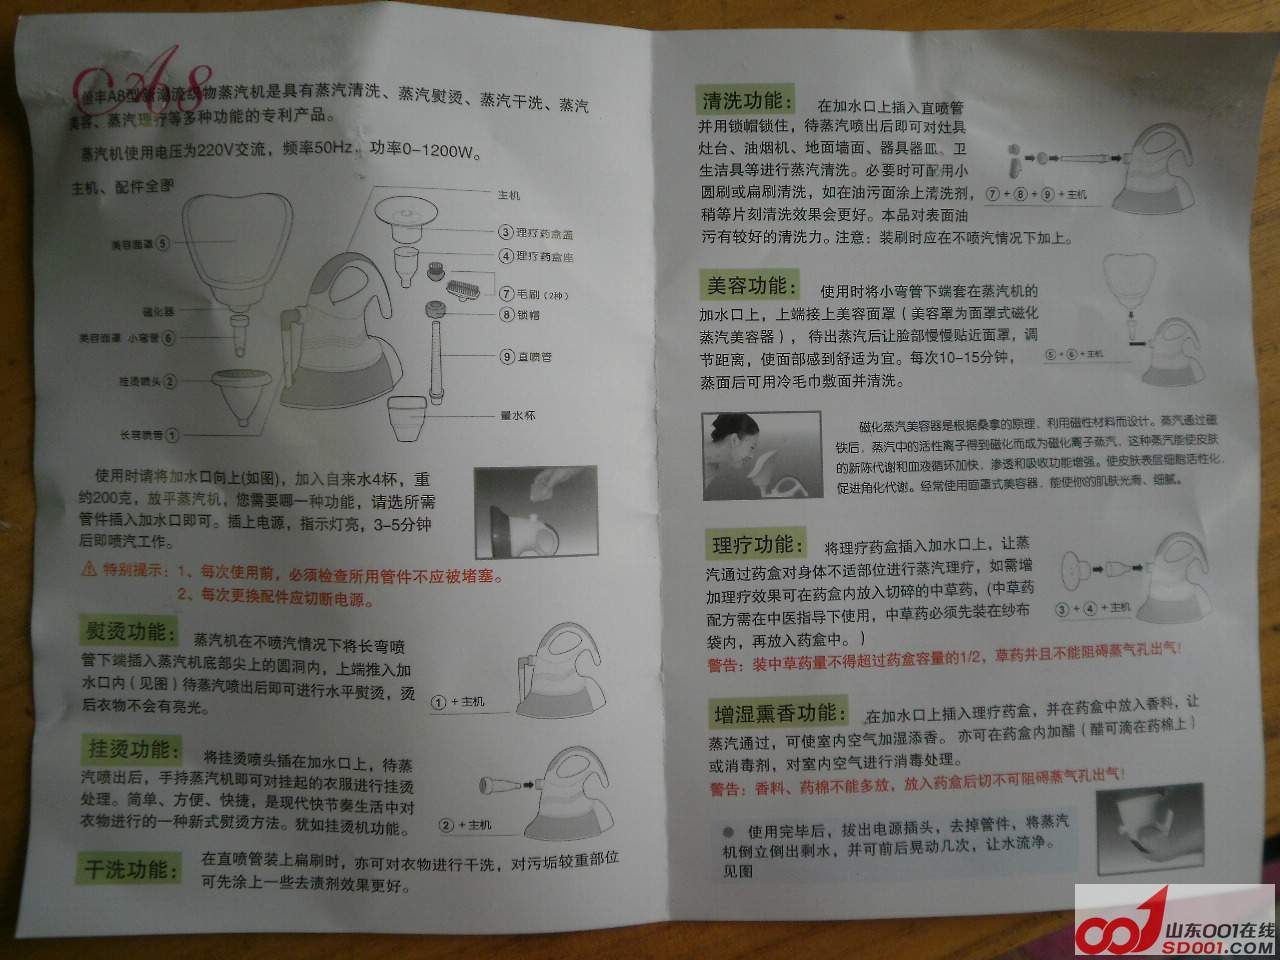 A8
A8型 物蒸汽机是具有蒸汽清洗、蒸汽熨烫、蒸汽干洗、蒸汽
美容、蒸汽理疗等多种功能的专利产品。
蒸汽机使用电压为220V交流，频率50Hz，功率0-1200W。
主机、配件全图
主机
③理疗药盒盖
④理疗药盒座
美容面罩⑤
⑦毛刷（2种）
磁化器
⑧锁帽
美容面罩 小弯管⑥
⑨直喷管
挂烫喷头②
量水杯
长弯喷管①
使用时请将加水口向上(如图)，加入自来水4杯，重
约200克，放平蒸汽机，您需要哪一种功能，请选所需
管件插入加水口即可。插上电源，指示灯亮，3-5分钟
后即喷汽工作。
特别提示：1、每次使用前，必须检查所用管件不应被堵塞。
2、每次更换配件应切断电源。
熨烫功能：
蒸汽机在不喷汽情况下将长弯喷
管下端插入蒸汽机底部尖上的圆洞内，上端推入加
水口内（见图）待蒸汽喷出后即可进行水平熨烫，烫
后衣物不会有亮光。
①+主机
挂烫功能：
将挂烫喷头插在加水口上，待蒸
汽喷出后，手持蒸汽机即可对挂起的衣服进行挂烫
处理。简单、方便、快捷，是现代快节奏生活中对
衣物进行的一种新式熨烫方法。犹如挂烫机功能。
②+主机
干洗功能：
在直喷管装上扁刷时，亦可对衣物进行干洗，对污垢较重部位
可先涂上一些去渍剂效果更好。
清洗功能：
在加水口上插入直喷管
并用锁帽锁住，待蒸汽喷出后即可对灶具
灶台、油烟机、地面墙面、器具器皿、卫
生洁具等进行蒸汽清洗。必要时可配用小
圆刷或扁刷清洗，如在油污面涂上清洗剂，
稍等片刻清洗效果会更好。本品对表面油
污有较好的清洗力。注意：装刷时应在不喷汽情况下加上。
⑦+⑧+⑨+主机
美容功能：
使用时将小弯管下端套在蒸汽机的
加水口上，上端接上美容面罩（美容罩为面罩式磁化
蒸汽美容器），待出蒸汽后让脸部慢慢贴近面罩，调
节距离，使面部感到舒适为宜。每次10-15分钟，
蒸面后可用冷毛巾敷面并清洗。
⑤+⑥+主机
磁化蒸汽美容器是根据桑拿的原理，利用磁性材料而设计。蒸汽通过磁
铁后，蒸汽中的活性离子得到磁化而成为磁化离子蒸汽，这种蒸汽能使皮肤
的新陈代谢和血液循环加快，渗透和吸收功能增强。使皮肤表层细胞活性化，
促进角化代谢。经常使用面罩式美容器，能使你的肌肤光滑、细腻。
理疗功能：
将理疗药盒插入加水口上，让蒸
汽通过药盒对身体不适部位进行蒸汽理疗，如需增
加理疗效果可在药盒内放入切碎的中草药，(中草药
配方需在中医指导下使用，中草药必须先装在纱布
袋内，再放入药盒中。)
③+④+主机
警告：装中草药量不得超过药盒容量的1/2，草药并且不能阻碍蒸气孔出气！
增湿熏香功能：
在加水口上插入理疗药盒，并在药盒中放入香料，让
蒸汽通过，可使室内空气加湿添香。亦可在药盒内加醋（醋可滴在药棉上）
或消毒剂，对室内空气进行消毒处理。
警告：香料、药棉不能多放，放入药盒后切不可阻碍蒸气孔出气！
● 使用完毕后，拔出电源插头，去掉管件，将蒸汽
机倒立倒出剩水，并可前后晃动几次，让水流净。
见图
山东001在线
SD001.COM